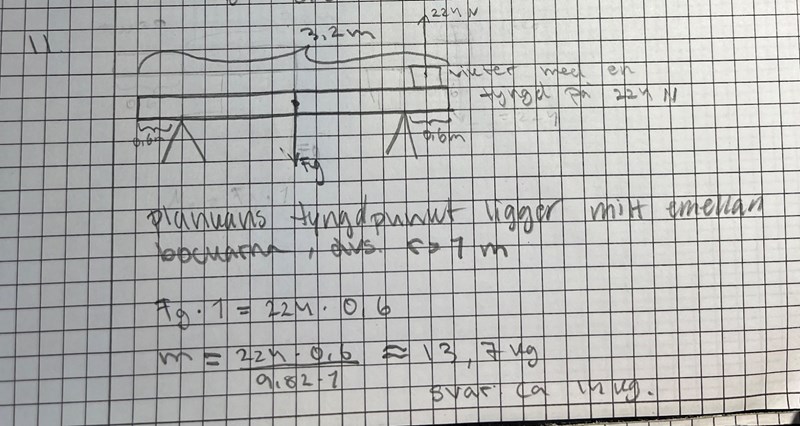 11.
224 N
3,2 m
vikter med en
tyngd på 224 N
0,6m
0,6m
Fg
plankans tyngdpunkt ligger mitt emellan
bockarna, dvs. <-> 1 m
Fg · 1 = 224 · 0,6
m = 224 · 0,6 / 9.82 · 1 ≈ 13,7 kg
svar: ca 14 kg.